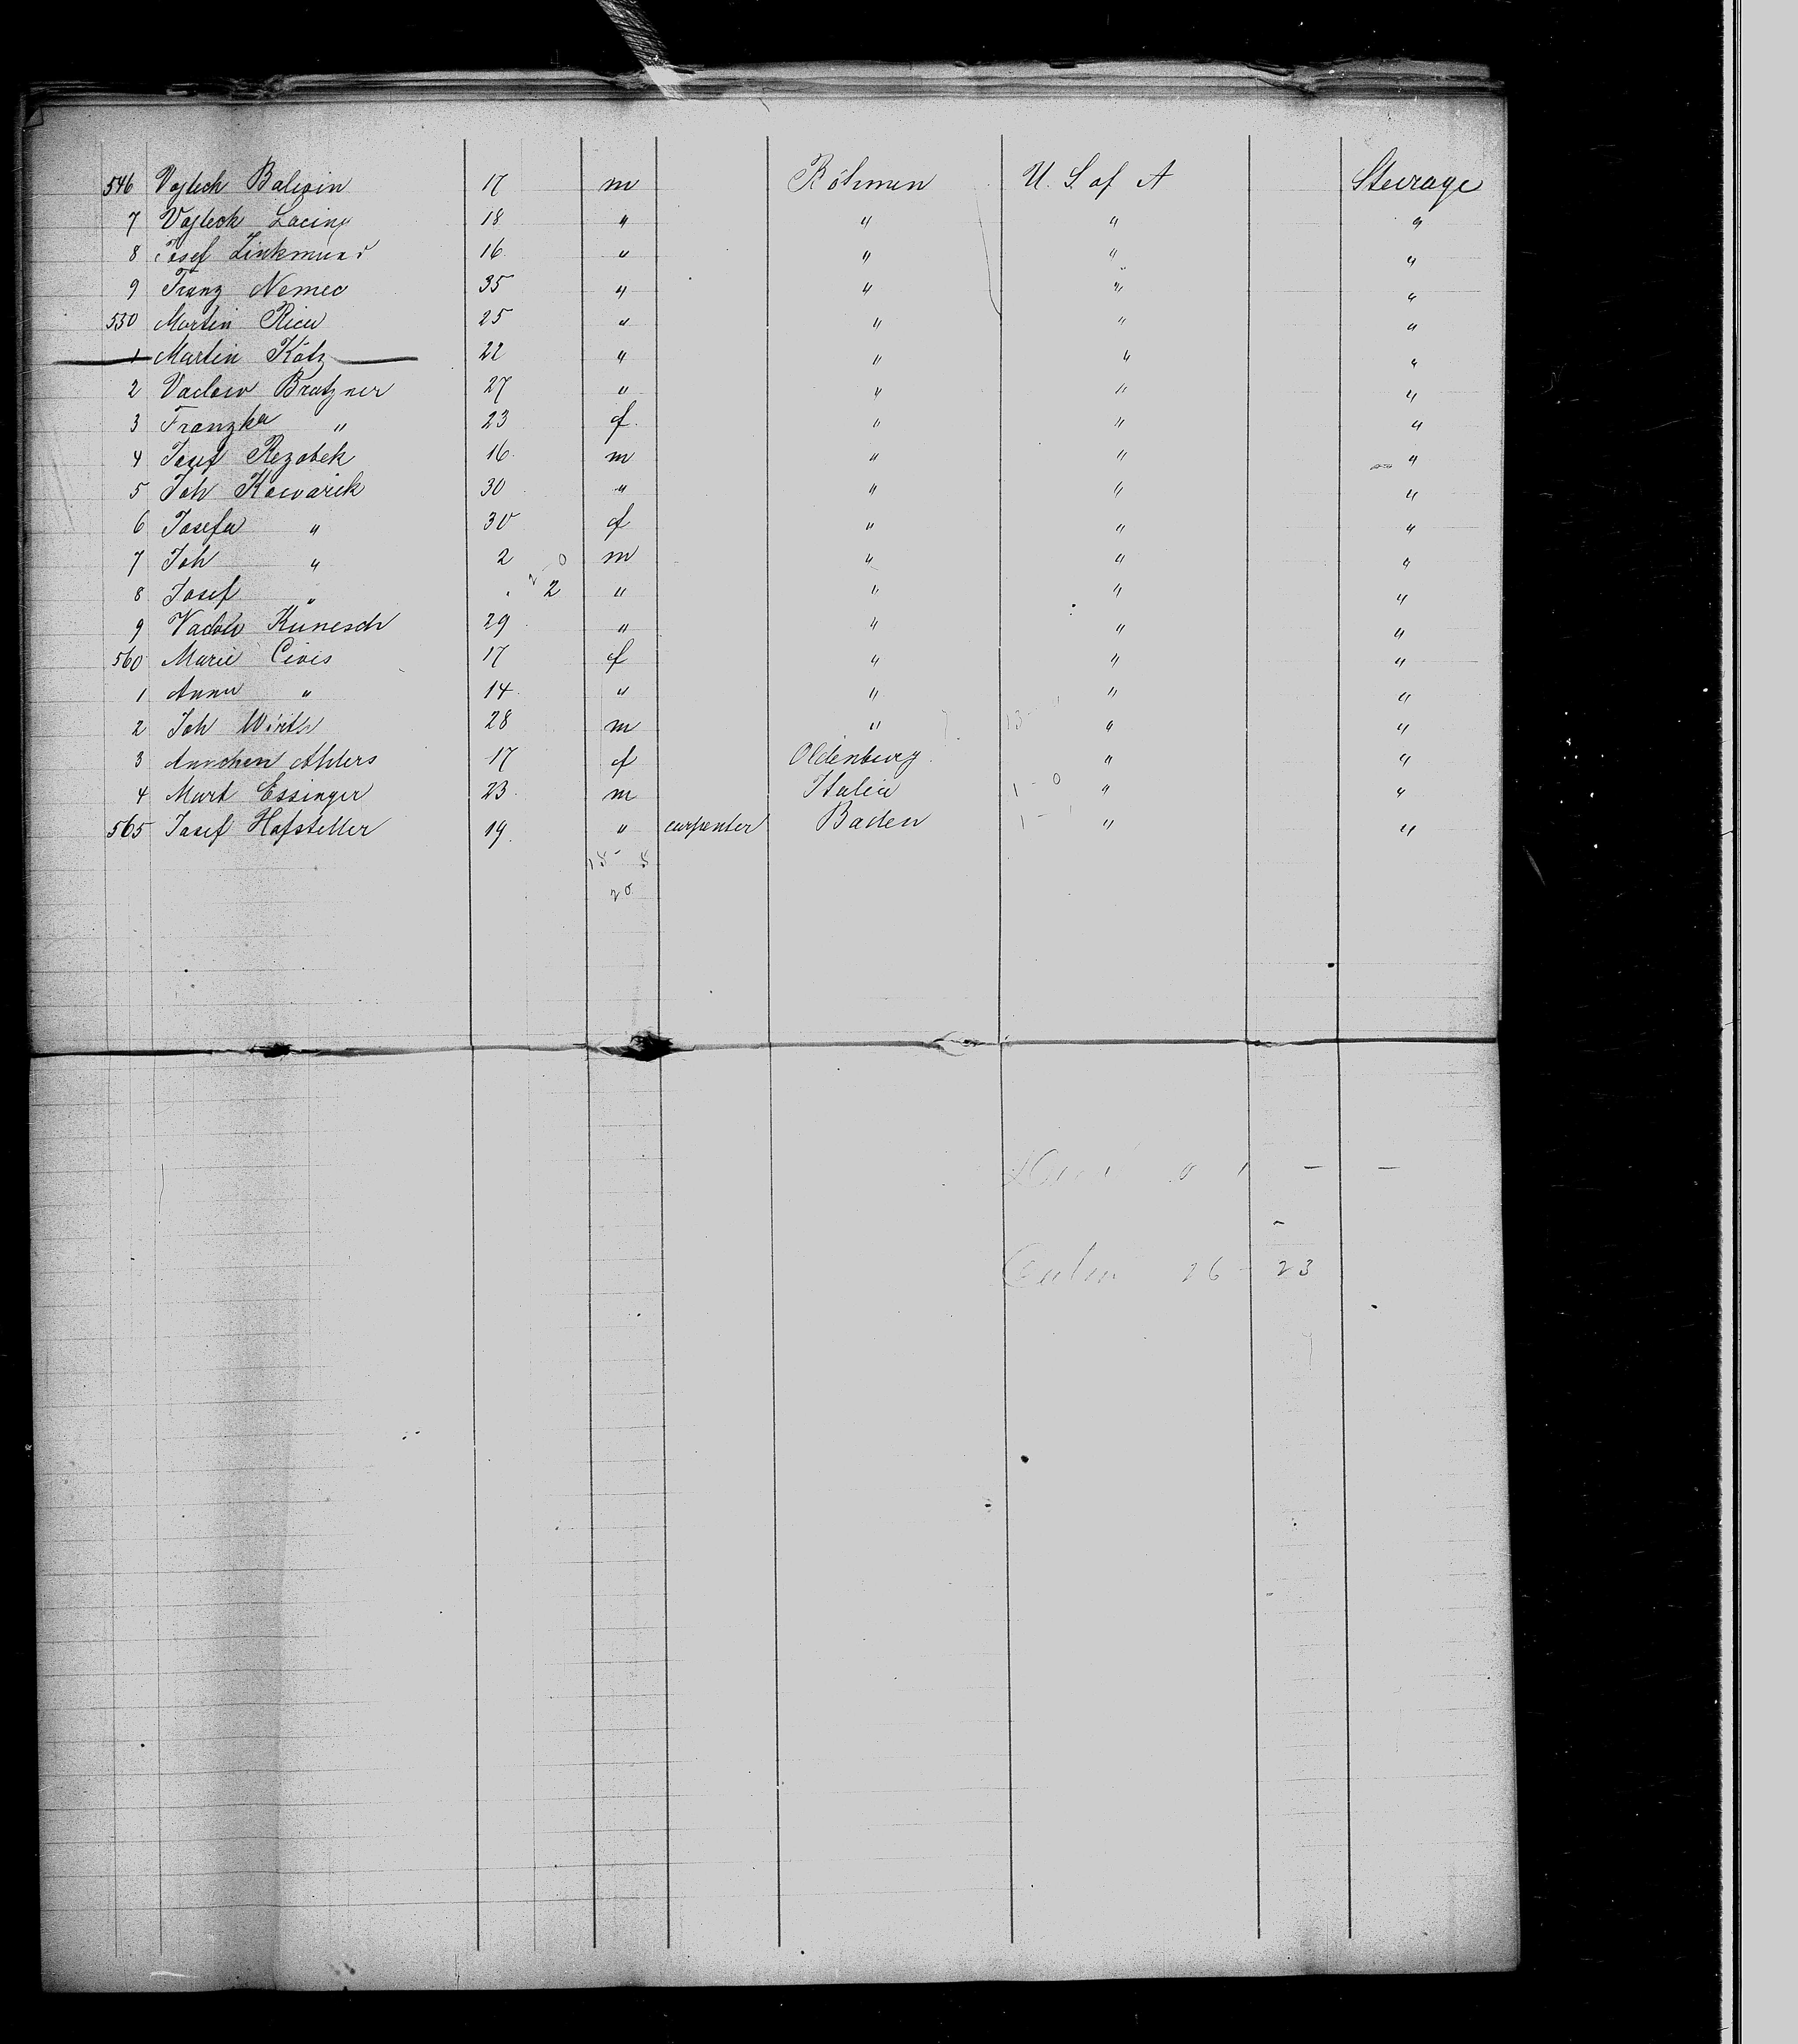 546 Vojtech Balwin 17 m Böhmen U. S. of A Steerage
7 Vojtech Lacina 18 " " " "
8 Josef 16 " " " "
9 Franz Nemec 35 " " " "
550 Martin 25 " " " "
1 Martin Kötz 22 " " " "
2 Vaclav Bratzner 27 " " " "
3 Franzka " 23 f " " "
4 Josef Rezabek 16 m " " "
5 Joh Kowarik 30 " " " "
6 Josefa " 30 f " " "
7 Joh " 2 m " " "
8 Josef " 2 " " " "
9 Vaclav Kunesch 29 " " " "
560 Marie Civis 17 f " " "
1 Anna " 14 " " " "
2 Joh Wirth 28 m " " "
3 Annchen Ahlers 17 f Oldenburg " "
4 Mart Essinger 23 m Italia 1-0 " "
565 Josef Hofsteller 19 " carpenter Baden 1- " "
20
26 23